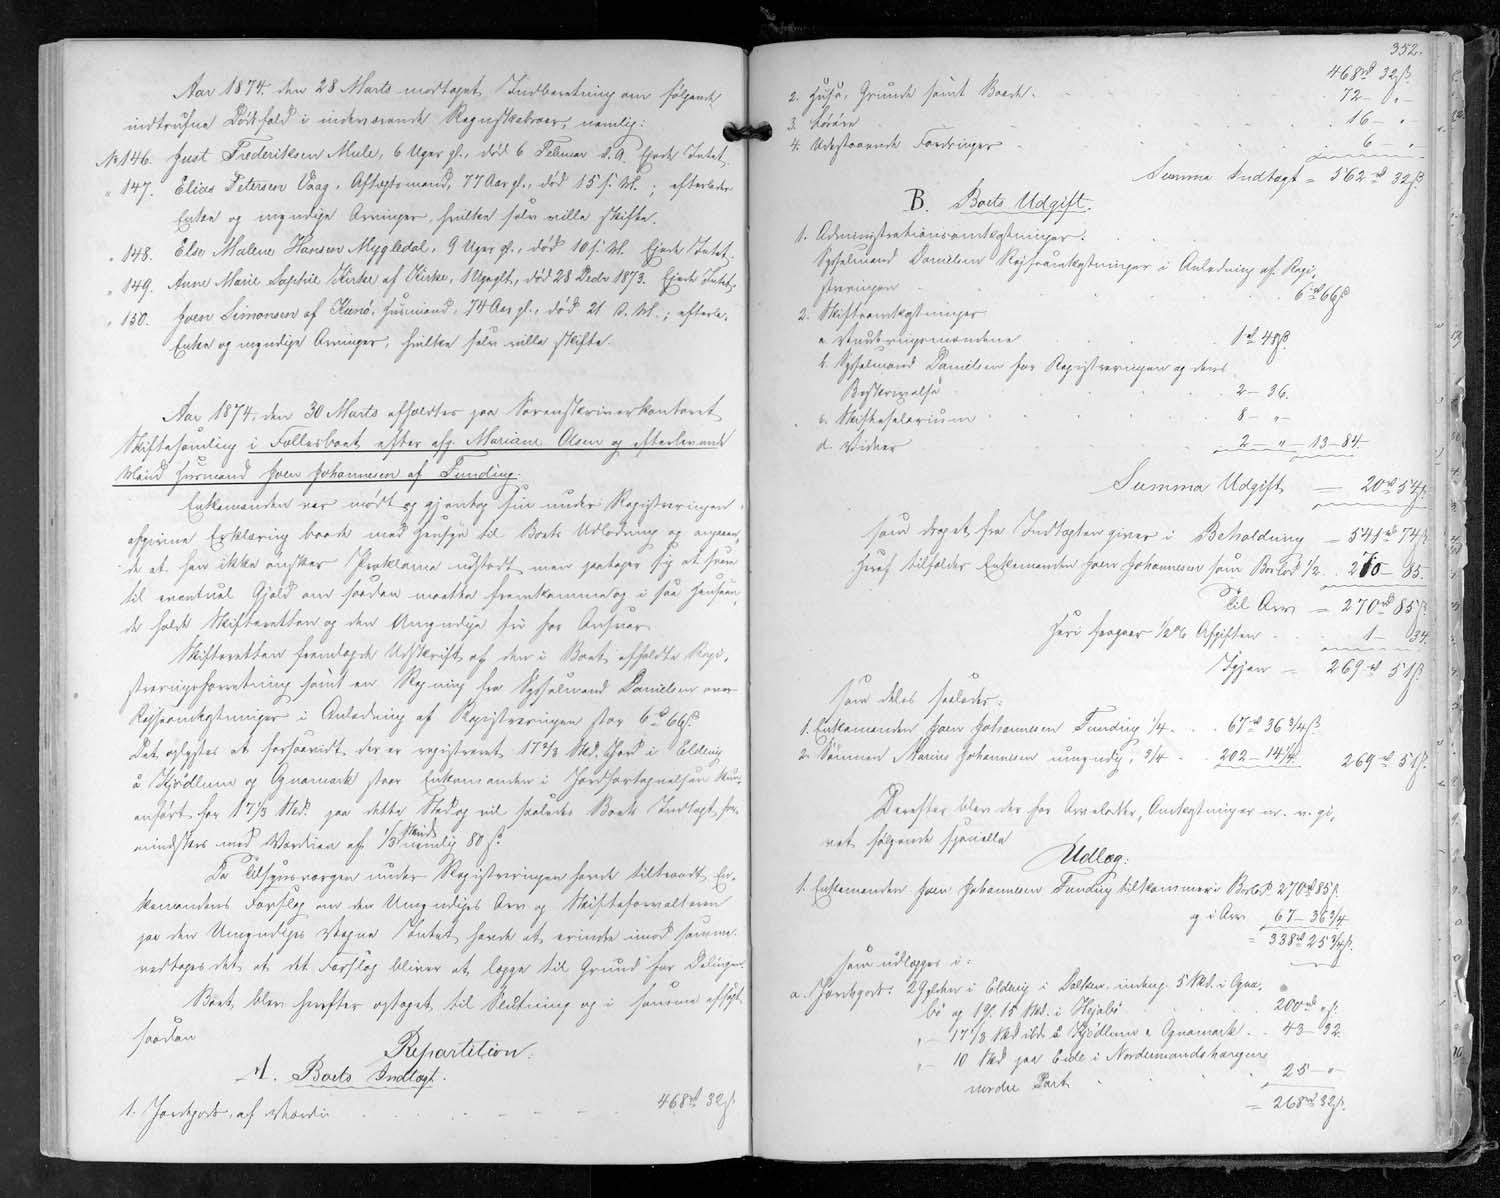 Aar 1874 den 28 Marts modtaget Indberetning om følgende
indtrufne Dødsfald i indeværende Regnskabsaar, nemlig:
No 146. Just Frederiksen Mule, 6 Uger gl., død 6 Februar d. A. Ejede Intet.
" 147. Elias Petersen Vaag, Aftægtsmand, 77 Aar gl., død 15 s. M.; efterlader
Enke og myndige Arvinger, hvilke selv ville skifte.
" 148. Else Malene Hansen Mygledal, 9 Uger gl., død 10 s. M. Ejede Intet.
" 149. Anne Marie Sophie Kirke af Kirke, 1 Uge gl., død 28 Decbr 1873. Ejede Intet.
" 150. Joen Simonsen af Kunø, Husmand, 74 Aar gl., død 21 d. M.; efterl.
Enke og myndige Arvinger, hvilke selv ville skifte.
Aar 1874, den 30 Marts afholdtes paa Sorenskriverkontoret
Skiftesamling i Fællesboet efter afg. Mariane Olsen og efterlevende
Mand Husmand Joen Johannesen af Funding.
Enkemanden var mødt og gjentog sin under Registreringen
afgivne Erklæring baade med Hensyn til Boets Udlodning og angaaen-
de at han ikke ønsker Proklama udstedt men paatager sig at svare
til eventuel Gjæld om saadan maatte fremkomme og i saa Henseen-
de holde Skifteretten og den Umyndige fri for Ansvar.
Skifteretten fremlagde Udskrift af den i Boet afholdte Regi-
streringsforretning samt en Regning fra Sysselmand Danielsen over
Rejseomkostninger i Anledning af Registreringen stor 6 rd 66 ß.
Det oplystes at forsaavidt der er registreret 17 2/3 Skd. Jord i Elduvig
å Kjødlum og Ognamark staar Enkemanden i Jordfortegnelsen kun
anført for 17 1/3 Skd. paa dette Sted og vil saaledes Boets Indtægt for-
mindskes med Værdien af 1/3 Skind nemlig 80 ß.
Da Tilsynsværgen under Registreringen havde tiltraadt En-
kemandens Forslag om den Umyndiges Arv og Skifteforvalteren
paa den Umyndiges Vegne Intet havde at erindre imod samme
vedtoges det at det Forslag bliver at lægge til Grund for Delingen.
Boet blev herefter optaget til Slutning og i samme afsagt
saadan
Repartition:
A. Boets Indtægt.
1. Jordegods, af Værdi . . . 468 rd 32 ß
352.
468 rd 32 ß.
2. Huse, Grunde samt Baade . 72 - " -
3. Løsøre . . . 16 - " -
4. Udestaaende Fordringer . . 6 - " -
Summa Indtægt = 562 rd 32 ß.
B. Boets Udgift.
1. Administrationsomkostninger:
Sysselmand Danielsen Rejseomkostninger i Anledning af Regi-
streringen . . . 6 rd 66 ß
2. Skifteomkostninger
a. Vurderingsmændene . . 1 rd 48 ß.
b. Sysselmand Danielsen for Registreringen og dens
Beskrivelse . . 2 - 36.
c. Skiftesalarium . . 8 - " -
d. Vidner . . 2 - " - 13 - 84
Summa Udgift = 20 rd 54 ß.
som draget fra Indtægten giver i Beholdning = 541 rd 74 ß.
Heraf tilfalder Enkemanden Joen Johannesen som Boslod 1/2 . . 270 - 85.
Til Arv = 270 rd 85 ß.
Heri fragaaer 1/2 % Afgiften . . 1 - 34.
Igjen = 269 rd 51 ß.
som deles saaledes:
1. Enkemanden Joen Johannesen Funding 1/4 . . 67 rd 36 3/4 ß
2. Sønnen Marius Johannesen umyndig, 3/4 . . 202 - 14 1/4. 269 rd 51 ß.
Derefter blev der for Arvelodder, Omkostninger m. v. gi-
vet følgende specielle
Udlæg:
1. Enkemanden Joen Johannesen Funding tilkommer i Boslod 270 rd 85 ß.
og i Arv 67 - 36 3/4
= 338 rd 25 3/4 ß.
som udlægges i:
a. Jordegods: 2 Gylden i Elduvig i Dalsker, indeng 5 Skd. i Ognu-
bø og 1 Gl. 15 Skd. i Hejabø 200 rd " ß.
" - 17 1/3 Skd ibd. å Kjødlum & Ognamark . . 43 - 32.
" - 10 Skd paa Eide i Nordenmandshavgene
nordre Part . . 25 - " -
= 268 rd 32 ß.